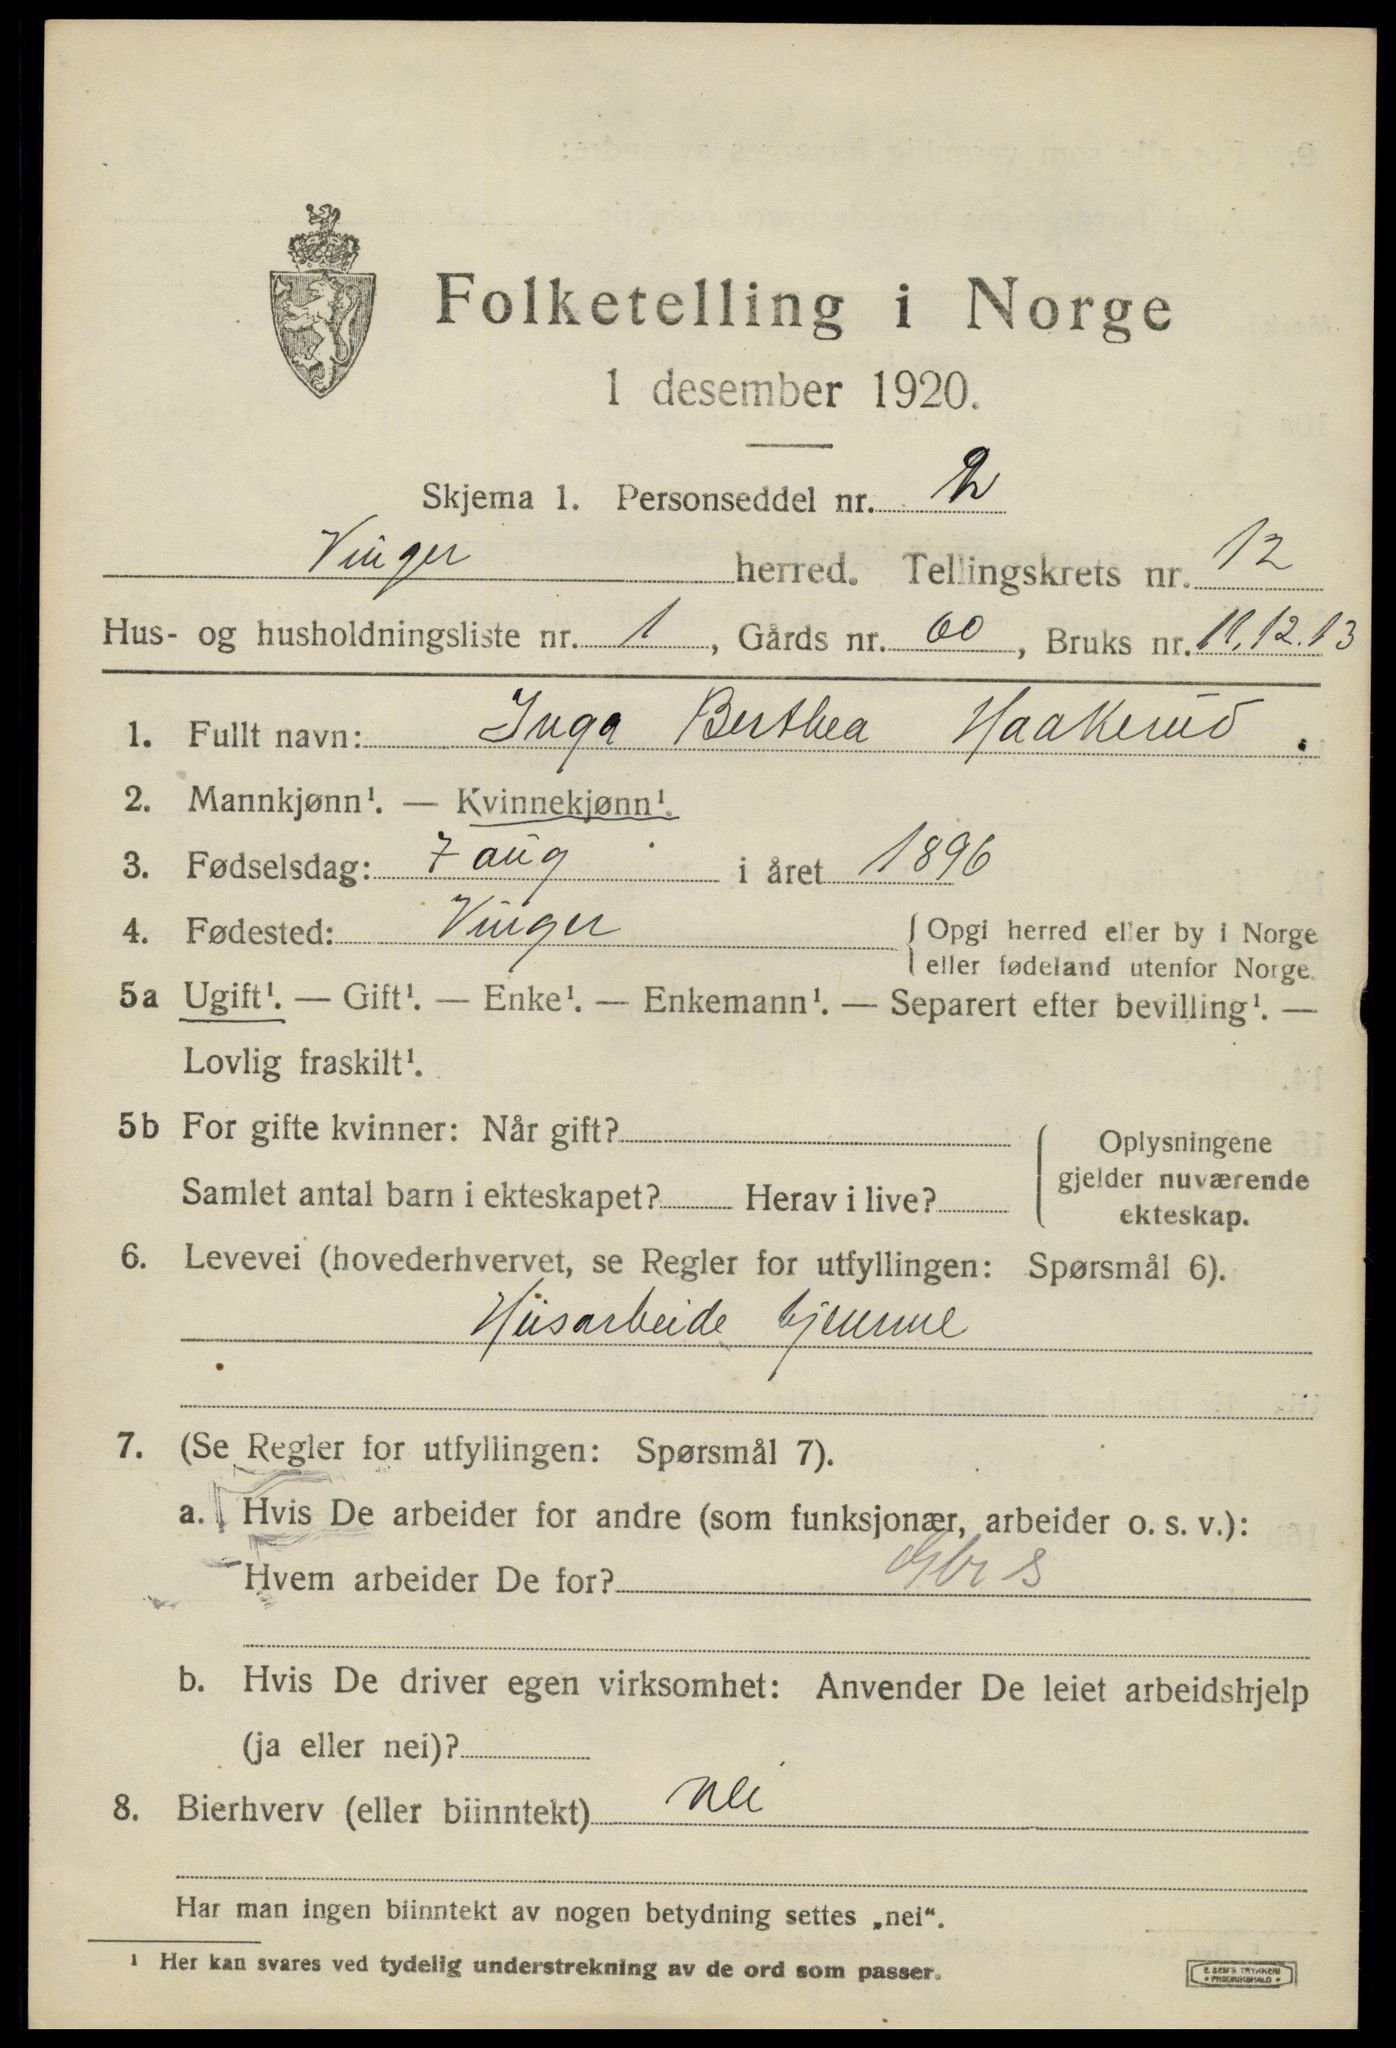 Folketelling i Norge
1 desember 1920.
Skjema 1. Personseddel nr. 2
Vinger herred. Tellingskrets nr. 12
Hus- og husholdningsliste nr. 1, Gårds nr. 60, Bruks nr. 11, 12. 13
1. Fullt navn: Inga Berthea Haakerud.
2. Mannkjønn¹. — Kvinnekjønn¹.
3. Fødselsdag: 7 aug i året 1896
4. Fødested: Vinger { Opgi herred eller by i Norge
eller fødeland utenfor Norge.
5a Ugift¹. — Gift¹. — Enke¹. — Enkemann¹. — Separert efter bevilling¹. —
Lovlig fraskilt¹.
5b For gifte kvinner: Når gift?
Samlet antal barn i ekteskapet? Herav i live?
Oplysningene
gjelder nuværende
ekteskap.
6. Levevei (hovederhvervet, se Regler for utfyllingen: Spørsmål 6).
Husarbeide hjemme
7. (Se Regler for utfyllingen: Spørsmål 7).
a. Hvis De arbeider for andre (som funksjonær, arbeider o. s. v.):
Hvem arbeider De for?
b. Hvis De driver egen virksomhet: Anvender De leiet arbeidshjelp
(ja eller nei)?
8. Bierhverv (eller biinntekt) nei
Har man ingen biinntekt av nogen betydning settes „nei“.
¹ Her kan svares ved tydelig understrekning av de ord som passer.
E. SEM'S TRYKKERI
• FREDRIKSHALD •